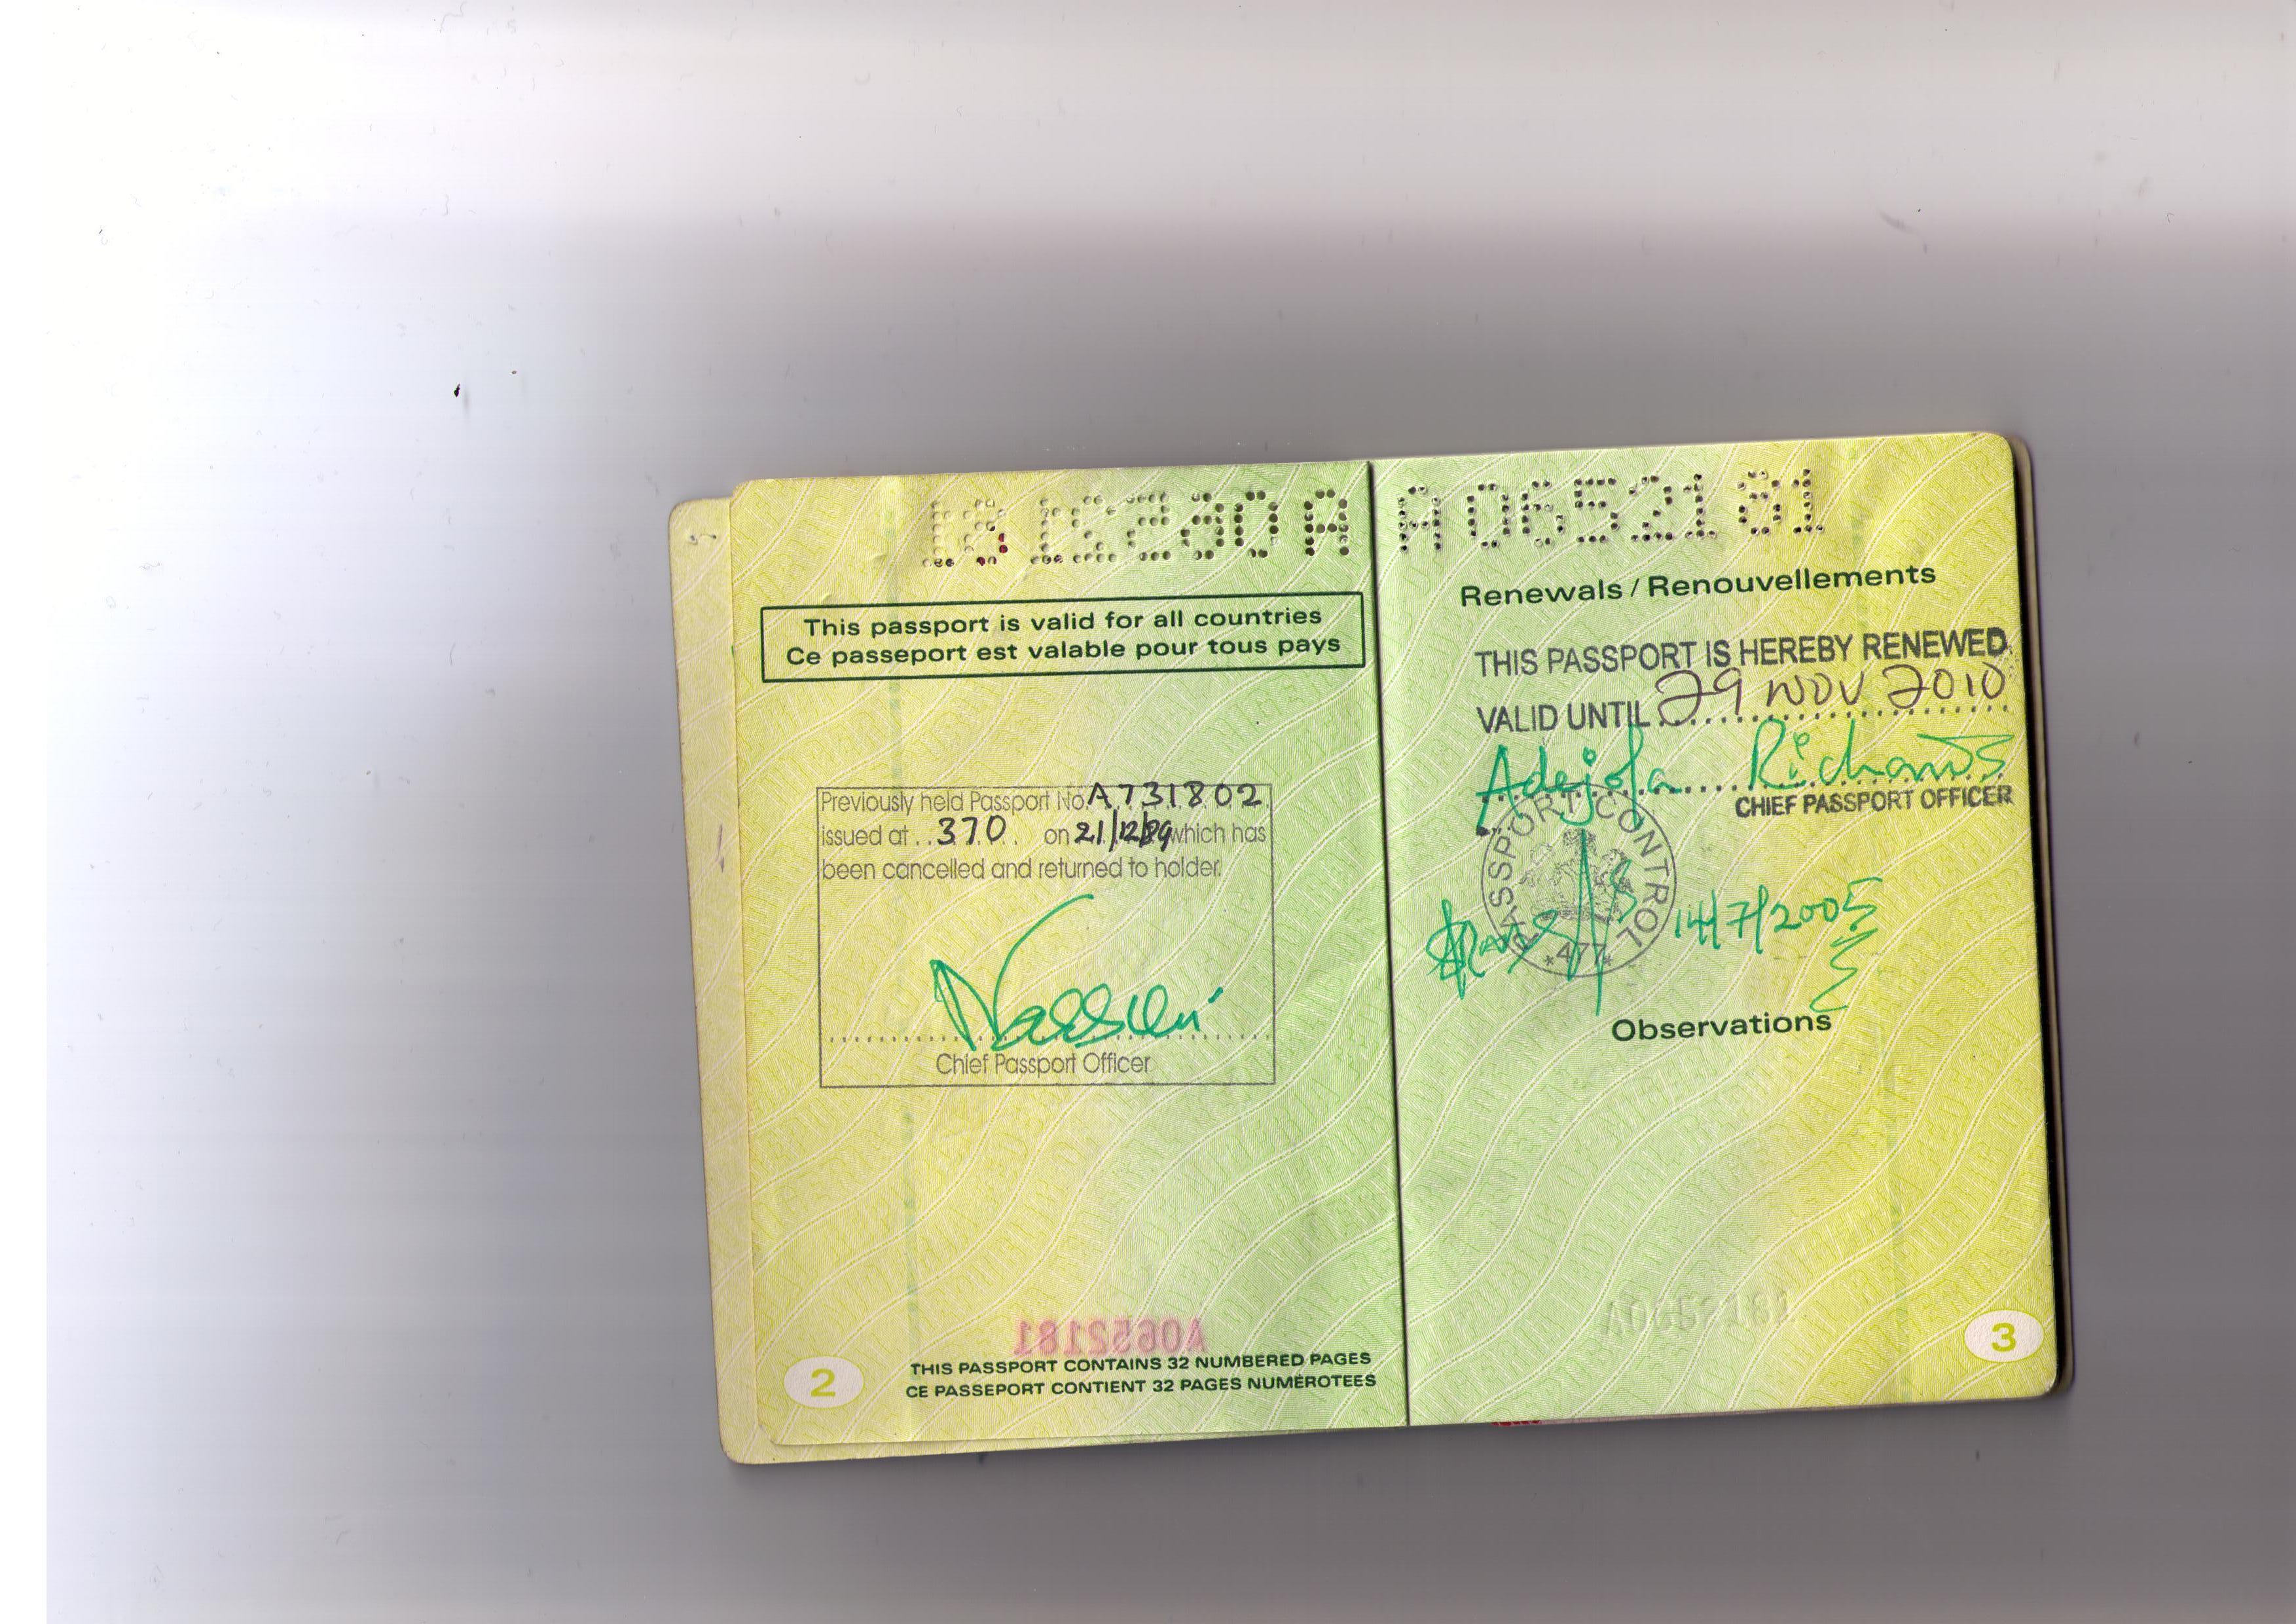 A0652181
This passport is valid for all countries
Ce passeport est valable pour tous pays
Previously held Passport No. A731802
issued at ..370.. on 21/12/89 which has
been cancelled and returned to holder.
Chief Passport Officer
A0652181
THIS PASSPORT CONTAINS 32 NUMBERED PAGES
CE PASSEPORT CONTIENT 32 PAGES NUMÉROTEES
2
A0652181
Renewals / Renouvellements
THIS PASSPORT IS HEREBY RENEWED
VALID UNTIL 29 NOV 2010
Adejola Richards
CHIEF PASSPORT OFFICER
PASSPORT CONTROL
*477*
14/7/2005
Observations
A0652181
3